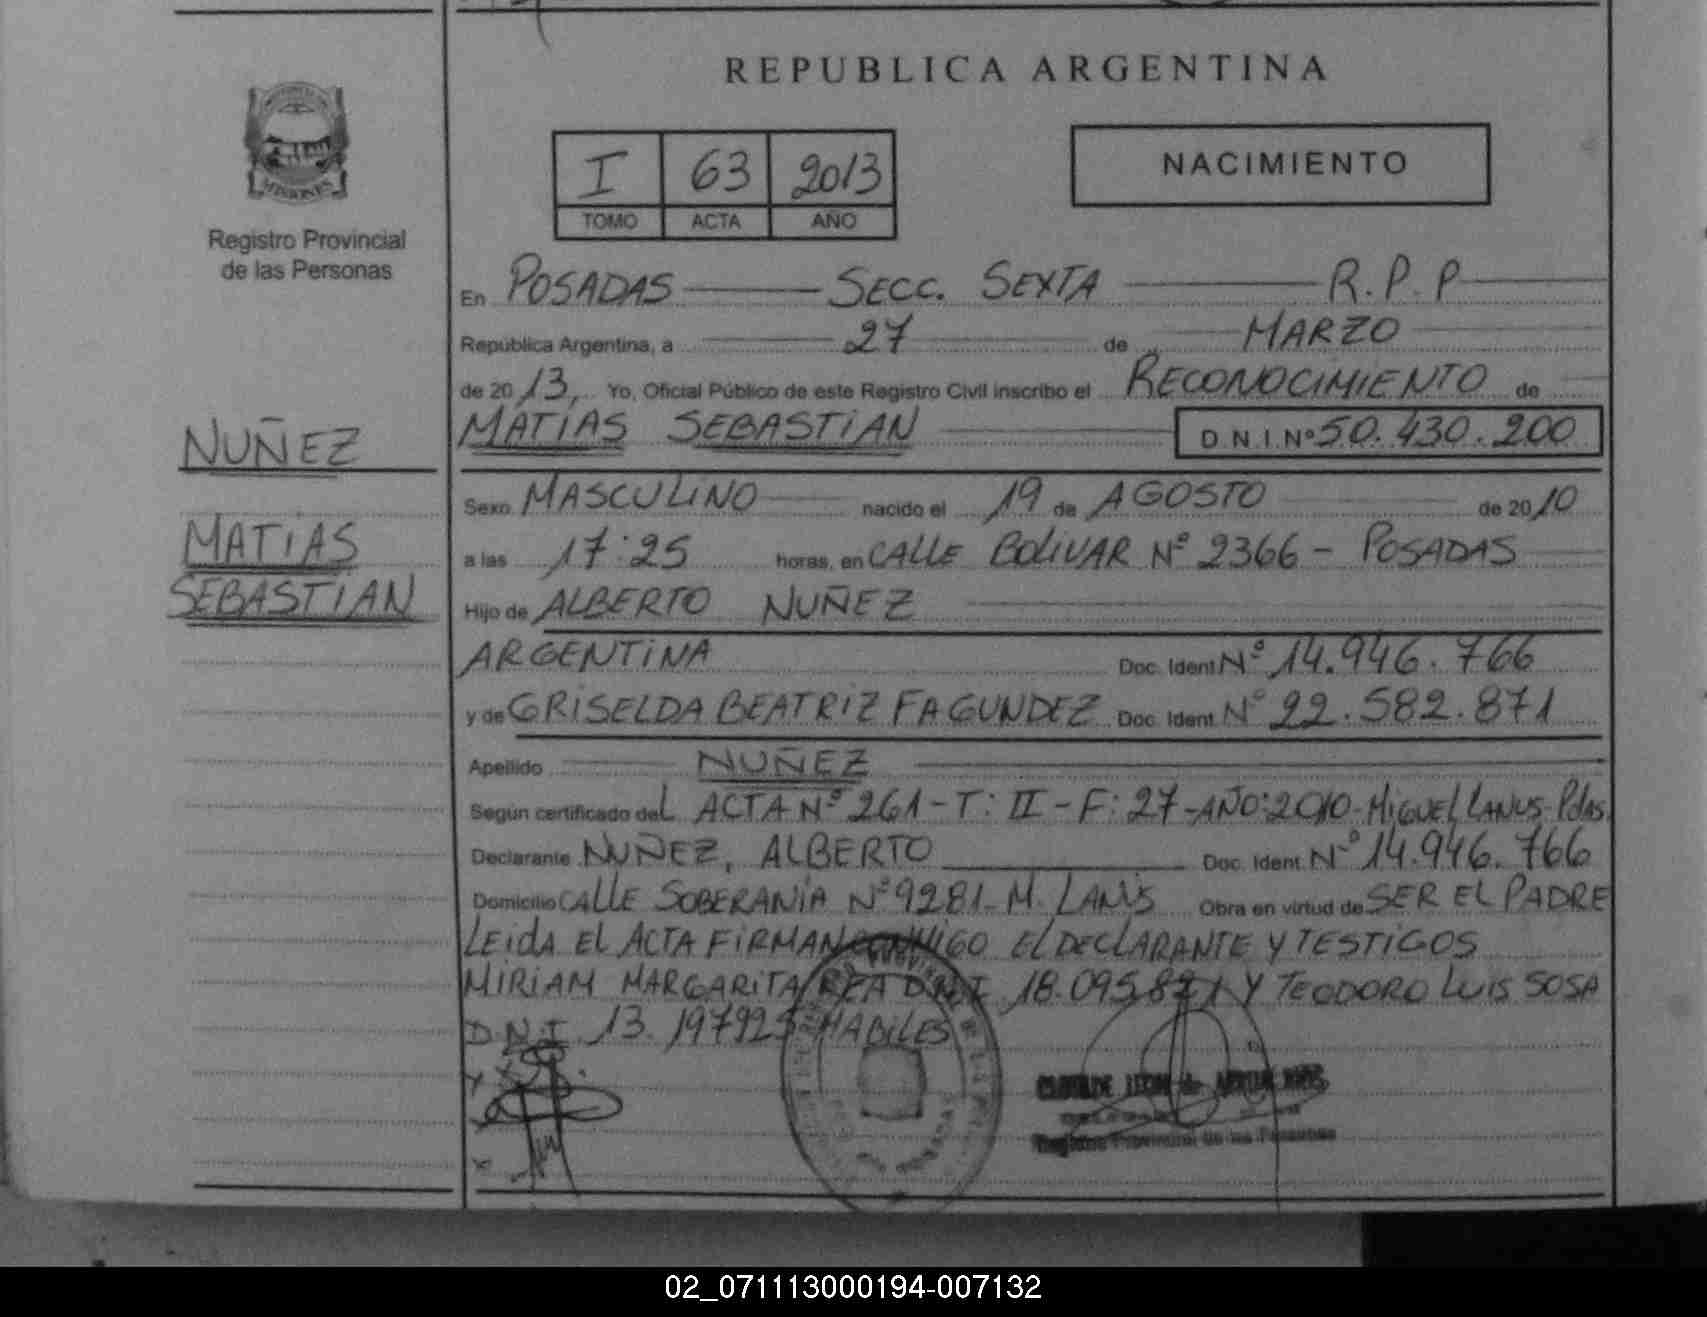 REPUBLICA ARGENTINA
I 63 2013
TOMO ACTA AÑO
NACIMIENTO
MISIONES
Registro Provincial
de las Personas
En POSADAS SECC. SEXTA R.P.P
República Argentina, a 27 de MARZO
de 2013, Yo, Oficial Público de este Registro Civil inscribo el RECONOCIMIENTO de
MATIAS SEBASTIAN D.N.I.Nº 50.430.200
NUÑEZ
MATIAS
SEBASTIAN
Sexo MASCULINO nacido el 19 de AGOSTO de 2010
a las 17:25 horas, en CALLE BOLIVAR Nº 2366 - POSADAS
Hijo de ALBERTO NUÑEZ
ARGENTINA Doc. Ident Nº 14.946.766
y de GRISELDA BEATRIZ FAGUNDEZ Doc. Ident. Nº 22.582.871
Apellido NUÑEZ
Según certificado del ACTA Nº 261 - T: II - F: 27 - AÑO: 2010 - MIGUEL LANUS - Pdas.
Declarante NUÑEZ, ALBERTO Doc. Ident. Nº 14.946.766
Domicilio CALLE SOBERANIA Nº 9281 - M. LANUS Obra en virtud de SER EL PADRE
LEIDA EL ACTA FIRMAN CONMIGO EL DECLARANTE Y TESTIGOS
MIRIAM MARGARITA D.N.I 18.095.871 Y TEODORO LUIS SOSA
D.N.I. 13.197925 HABILES
Registro Provincial de las Personas
02_071113000194-007132